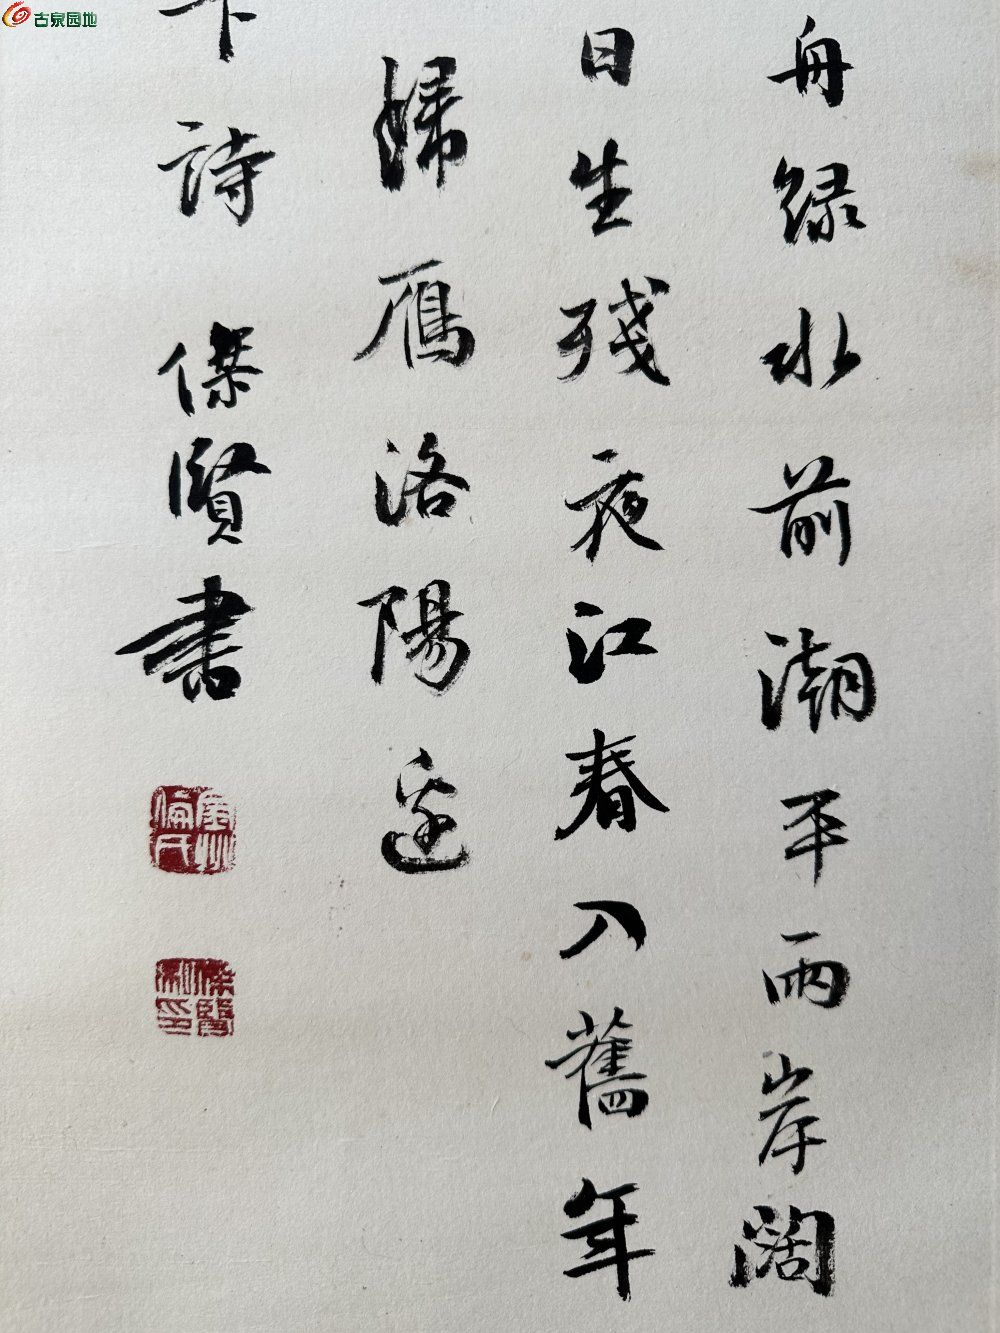 古泉园地
舟绿水前潮平兩岸阔
日生殘夜江春入舊年
歸雁洛陽邊
下詩 傑賢書
傑賢